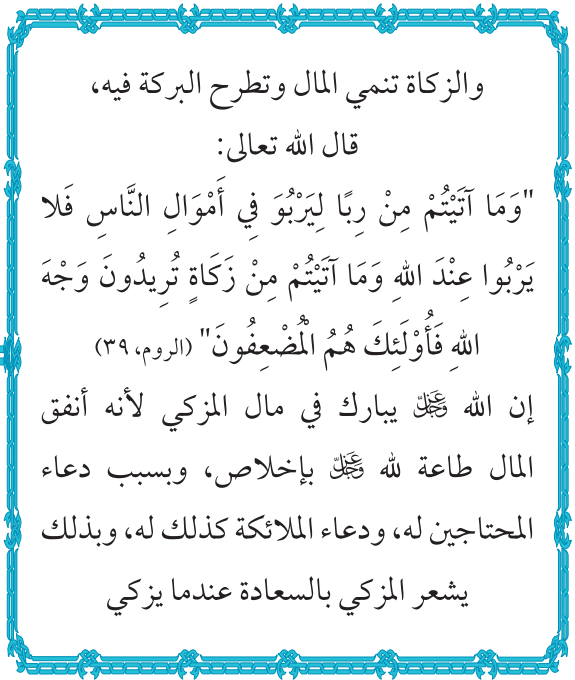 والزكاة تنمي المال وتطرح البركة فيه،
قال الله تعالى:
"وَمَا آتَيْتُمْ مِنْ رِبًا لِيَرْبُوَ فِي أَمْوَالِ النَّاسِ فَلا
يَرْبُوا عِنْدَ اللهِ وَمَا آتَيْتُمْ مِنْ زَكَاةٍ تُرِيدُونَ وَجْهَ
اللهِ فَأُوْلَئِكَ هُمُ الْمُضْعِفُونَ" (الروم، ٣٩)
إن الله عز وجل يبارك في مال المزكي لأنه أنفق
المال طاعة لله عز وجل بإخلاص، وبسبب دعاء
المحتاجين له، ودعاء الملائكة كذلك له، وبذلك
يشعر المزكي بالسعادة عندما يزكي